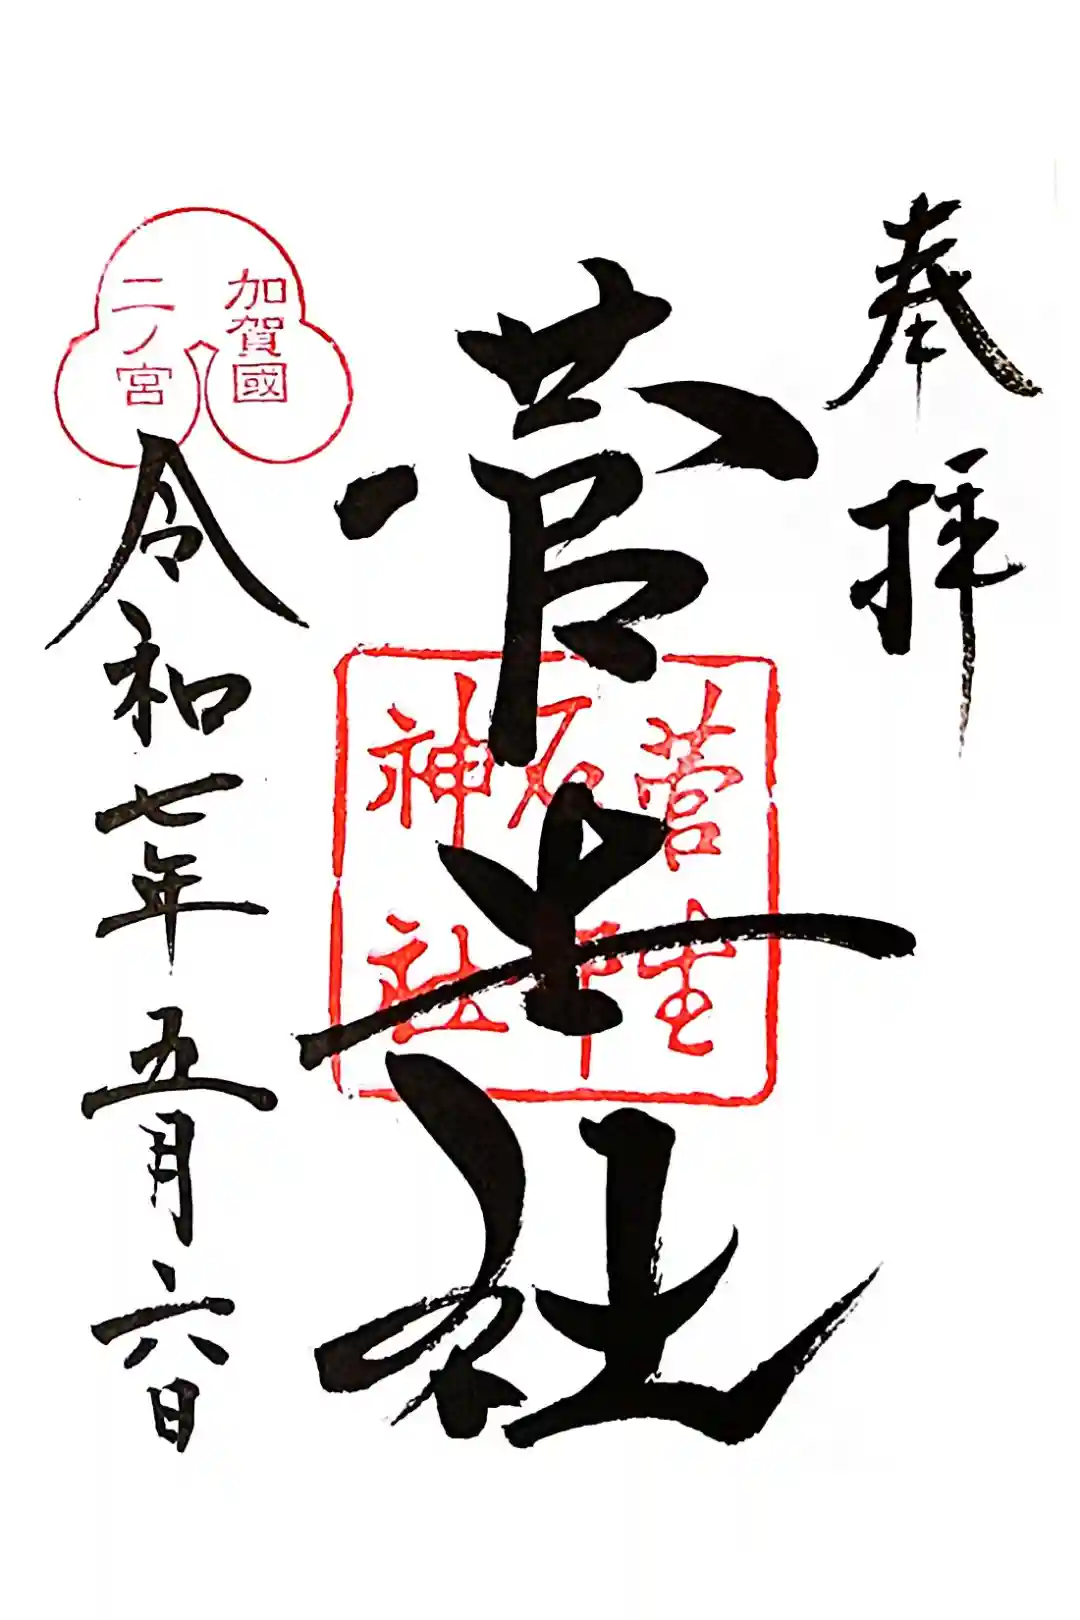 奉拝
菅生社
菅生
石部
神社
加賀國
二ノ宮
令和七年五月六日